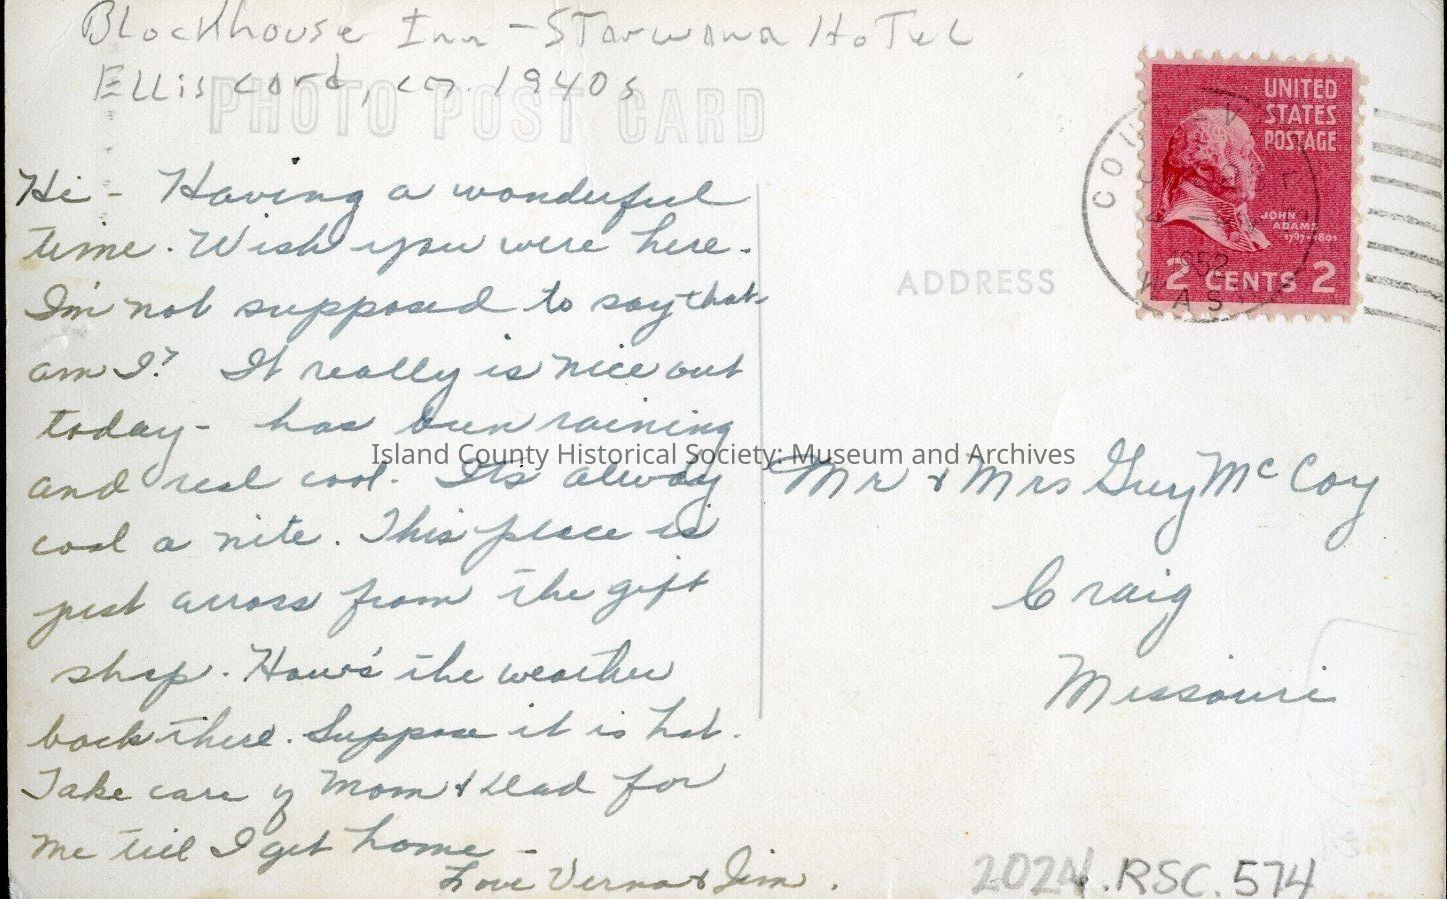 Blockhouse Inn - Starwana Hotel
Ellis card, ca. 1940s
PHOTO POST CARD
Hi - Having a wonderful
time. Wish you were here.
I'm not supposed to say that-
am I? It really is nice out
today - has been raining
and real cool. Its alway
cool a nite. This place is
just across from the gift
shop. How's the weather
back there. Suppose it is hot.
Take care of Mom & Dad for
me till I get home -
Love Verna & Jim.
UNITED
STATES
POSTAGE
JOHN
ADAMS
1797-1801
2 CENTS 2
COU
1952
WASH
ADDRESS
Mr & Mrs Guy McCoy
Craig
Missouri
Island County Historical Society: Museum and Archives
2024.RSC.574